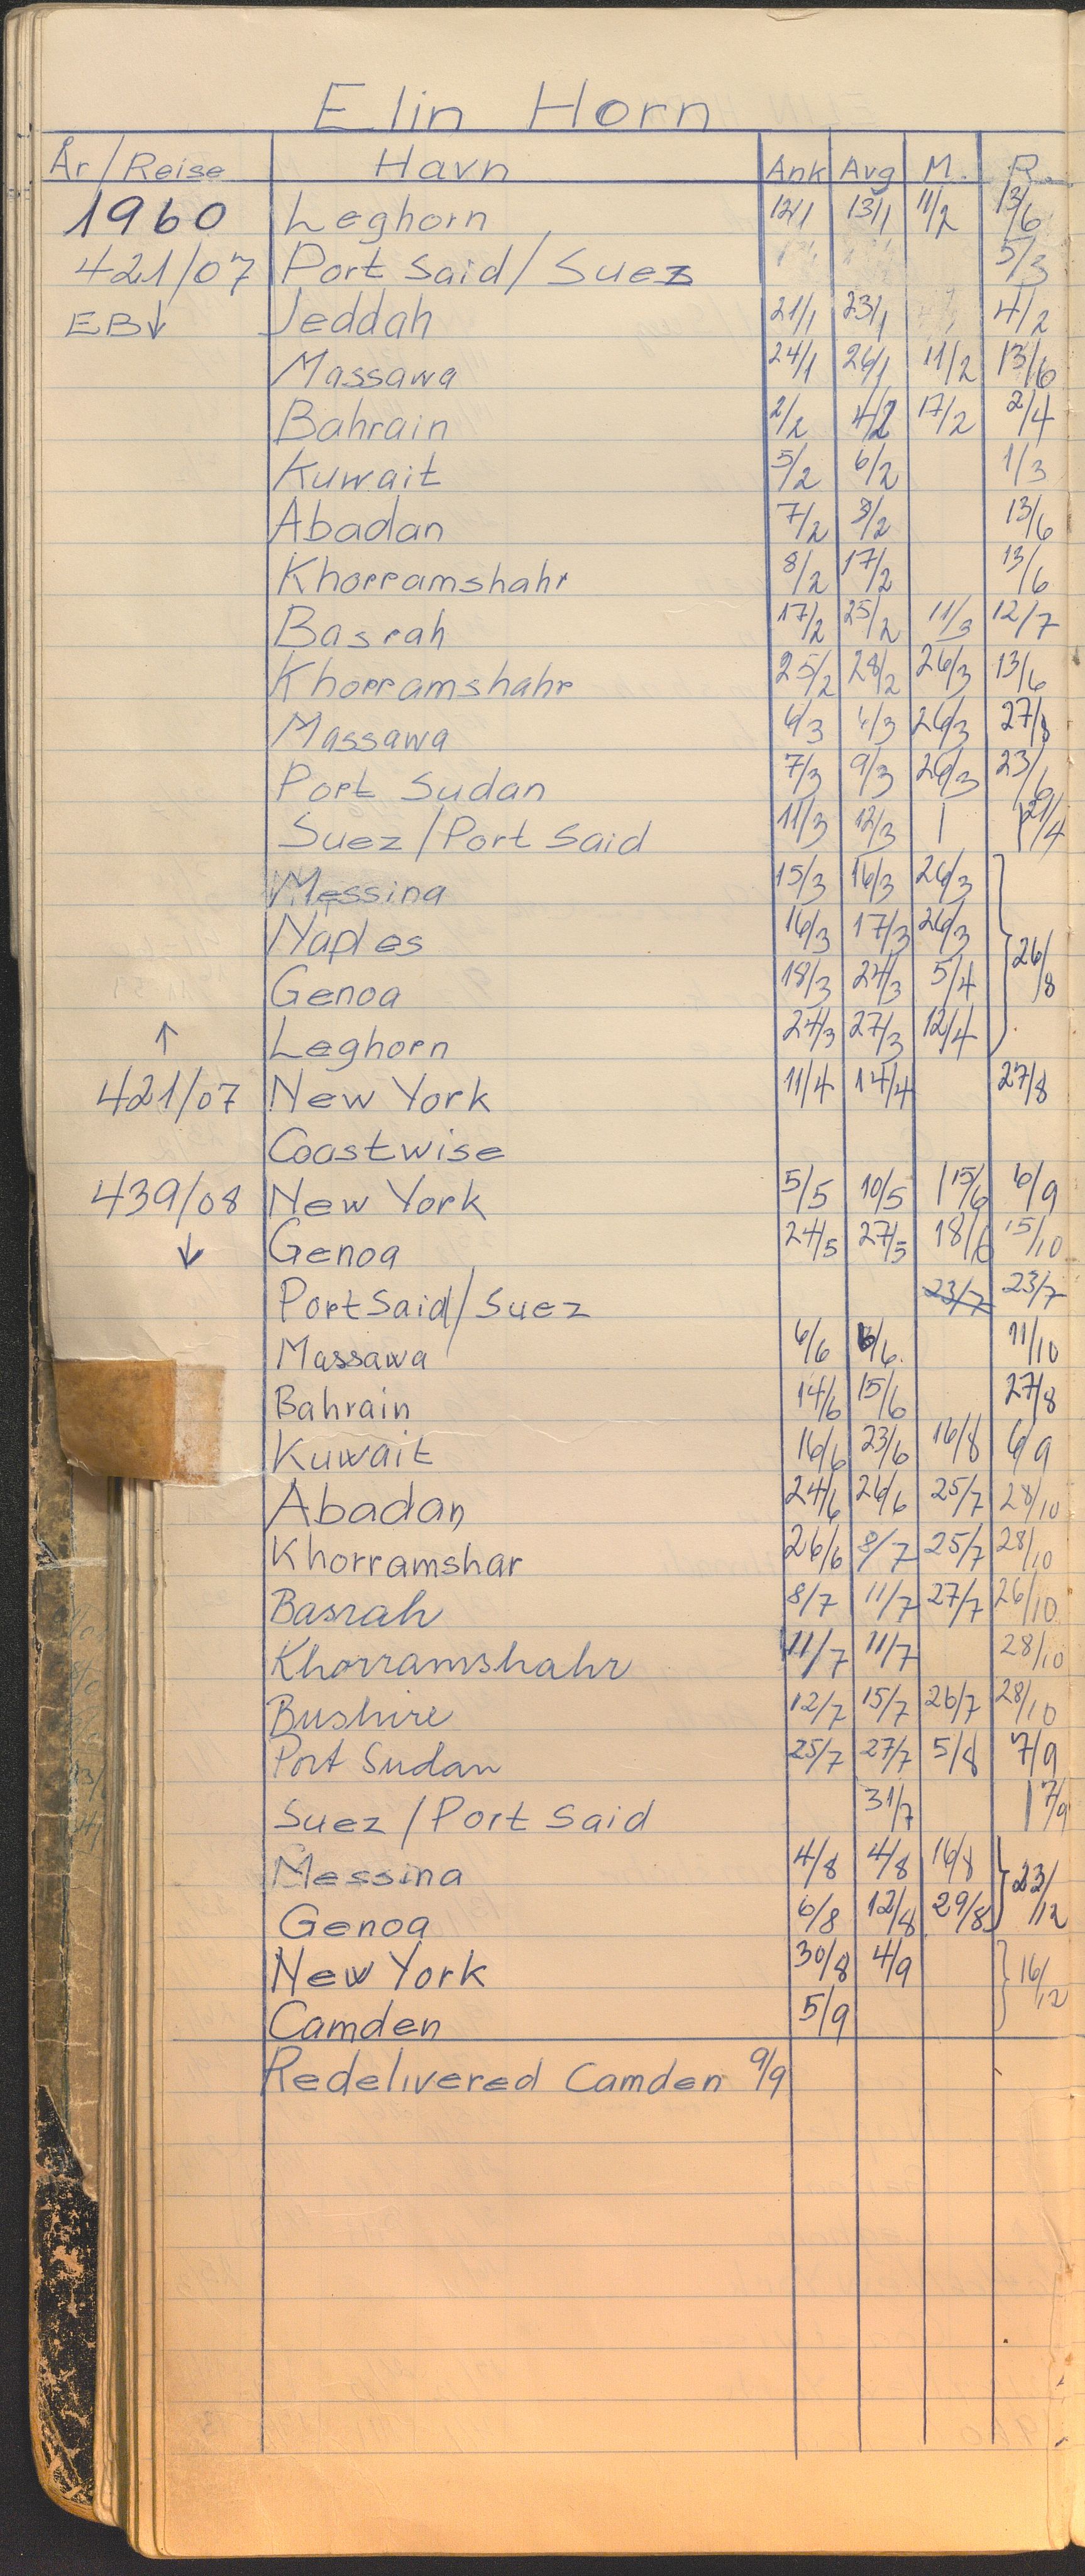 Elin Horn
År/Reise Havn Ank Avg M. R.
1960 Leghorn 12/1 13/1 11/2 13/6
421/07 Port Said/Suez 5/3
EB↓ Jeddah 21/1 23/1 4/2
Massawa 24/1 26/1 11/2 13/6
Bahrain 2/2 4/2 17/2 2/4
Kuwait 5/2 6/2 1/3
Abadan 7/2 8/2 13/6
Khorramshahr 8/2 17/2 13/6
Basrah 17/2 25/2 11/3 12/7
Khorramshahr 25/2 28/2 26/3 13/6
Massawa 6/3 6/3 26/3 27/8
Port Sudan 7/3 9/3 26/3 23/6
Suez/Port Said 11/3 12/3 21/4
Messina 15/3 16/3 26/3
Naples 16/3 17/3 26/3 26/8
Genoa 18/3 24/3 5/4
↑ Leghorn 24/3 27/3 12/4
421/07 New York 11/4 14/4 27/8
Coastwise
439/08 New York 5/5 10/5 15/6 6/9
↓ Genoa 24/5 27/5 18/6 15/10
Port Said/Suez 23/7 23/7
Massawa 6/6 6/6. 11/10
Bahrain 14/6 15/6 27/8
Kuwait 16/6 23/6 16/8 6/9
Abadan 24/6 26/6 25/7 28/10
Khorramshar 26/6 8/7 25/7 28/10
Basrah 8/7 11/7 27/7 26/10
Khorramshahr 11/7 11/7 28/10
Bushire 12/7 15/7 26/7 28/10
Port Sudan 25/7 27/7 5/8 7/9
Suez/Port Said 31/7 7/9
Messina 4/8 4/8 16/8 23/12
Genoa 6/8 12/8 29/8
New York 30/8 4/9 16/12
Camden 5/9
Redelivered Camden 9/9